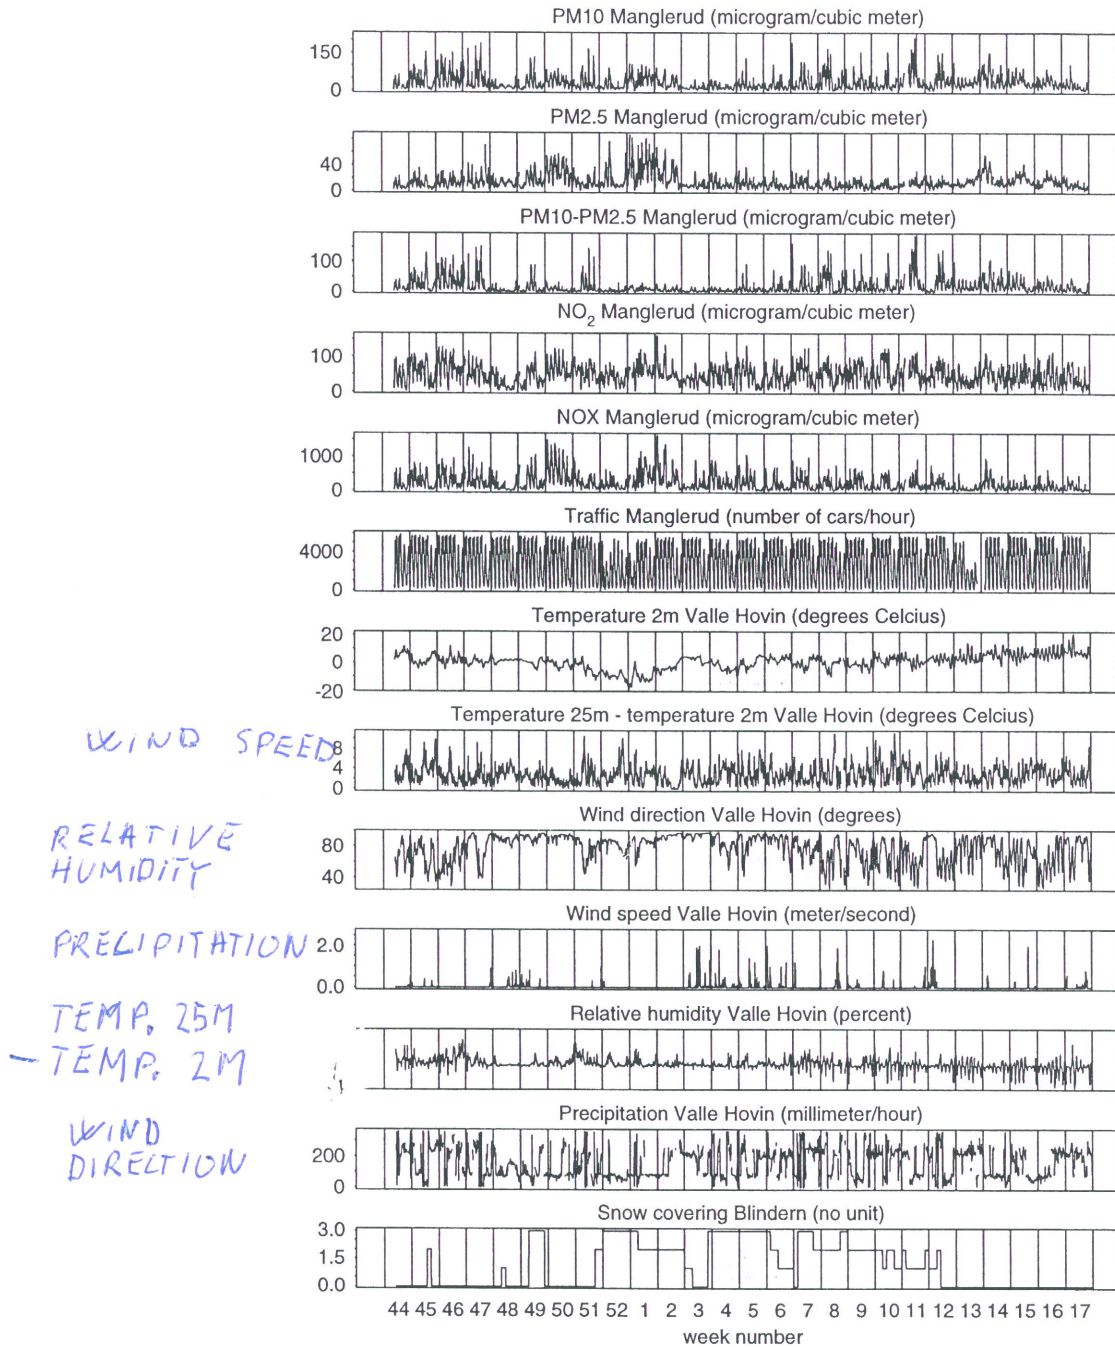 PM10 Manglerud (microgram/cubic meter)
150
0
PM2.5 Manglerud (microgram/cubic meter)
40
0
PM10-PM2.5 Manglerud (microgram/cubic meter)
100
0
NO2 Manglerud (microgram/cubic meter)
100
0
NOX Manglerud (microgram/cubic meter)
1000
0
Traffic Manglerud (number of cars/hour)
4000
0
Temperature 2m Valle Hovin (degrees Celcius)
20
0
-20
Temperature 25m - temperature 2m Valle Hovin (degrees Celcius)
WIND SPEED
8
4
0
Wind direction Valle Hovin (degrees)
RELATIVE
HUMIDITY
80
40
Wind speed Valle Hovin (meter/second)
PRECIPITATION
2.0
0.0
Relative humidity Valle Hovin (percent)
TEMP. 25M
- TEMP. 2M
Precipitation Valle Hovin (millimeter/hour)
WIND
DIRECTION
200
0
Snow covering Blindern (no unit)
3.0
1.5
0.0
44 45 46 47 48 49 50 51 52 1 2 3 4 5 6 7 8 9 10 11 12 13 14 15 16 17
week number